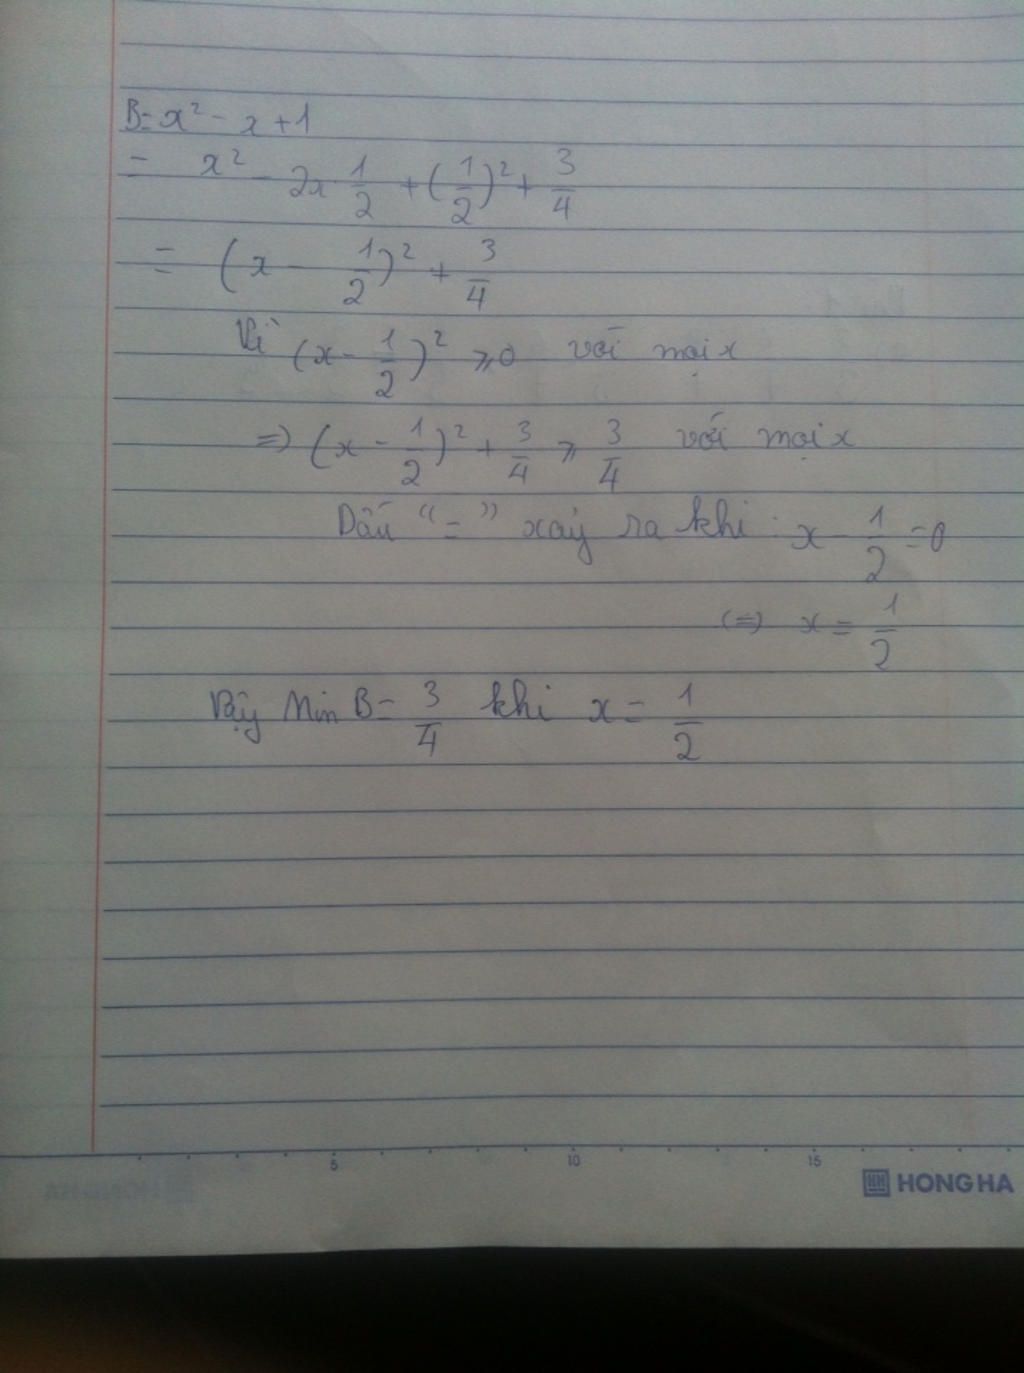 B = x² - x + 1
= x² - 2x · 1/2 + (1/2)² + 3/4
= (x - 1/2)² + 3/4
Vì (x - 1/2)² ⩾ 0 với mọi x
=> (x - 1/2)² + 3/4 ⩾ 3/4 với mọi x
Dấu “=” xảy ra khi : x - 1/2 = 0
(=) x = 1/2
Vậy Min B = 3/4 khi x = 1/2
5 10 15
HONG HA